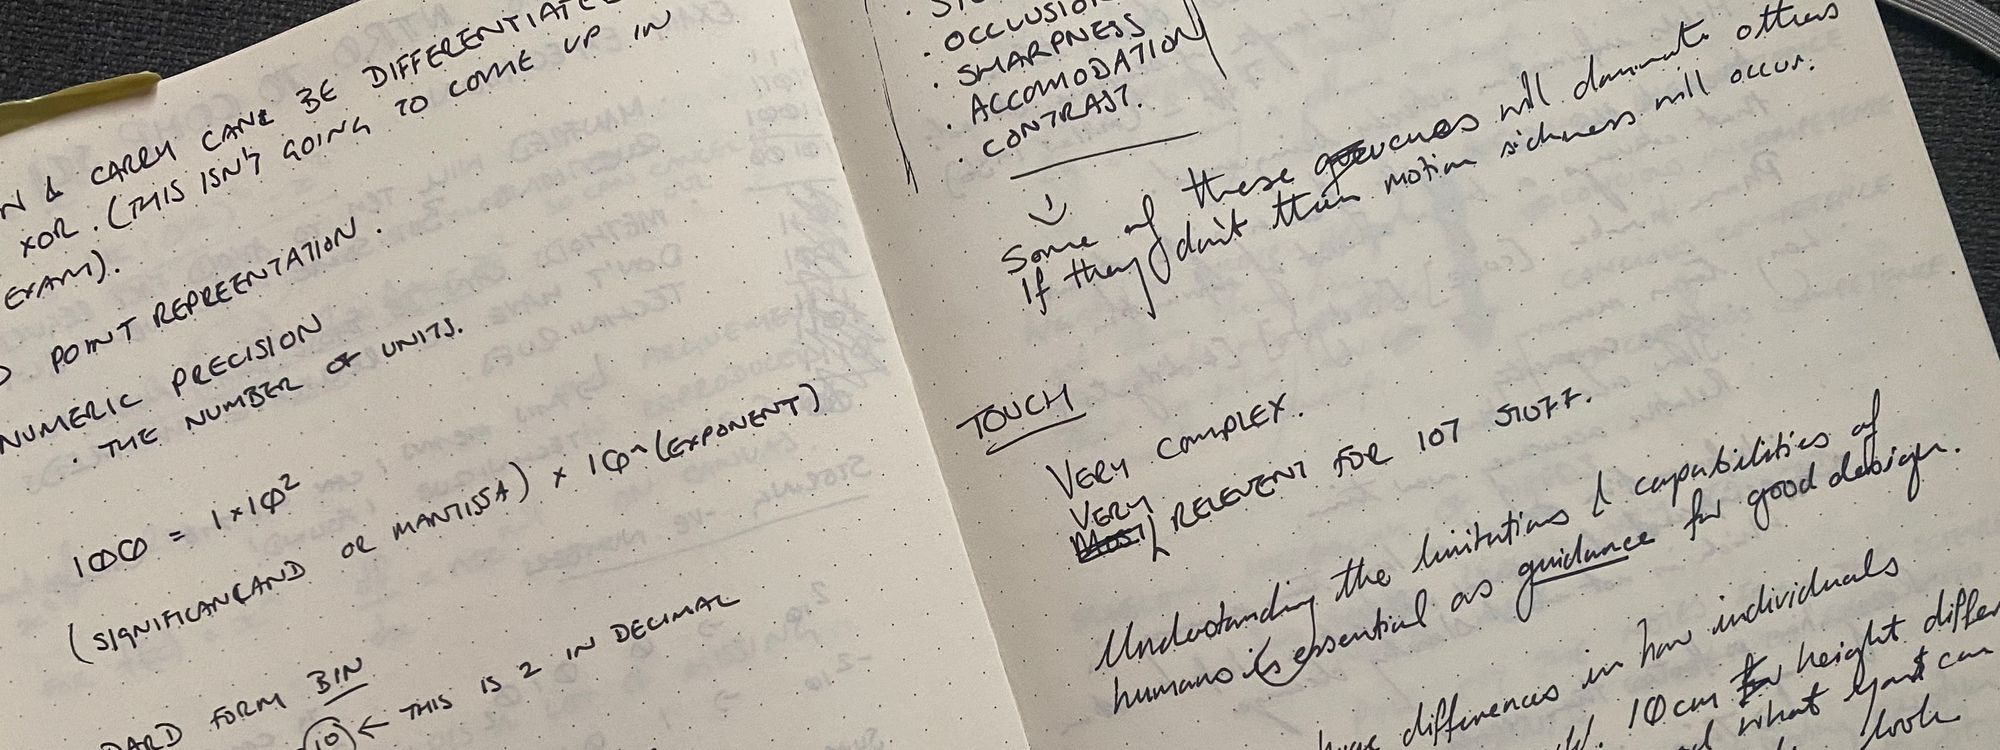 N & CARRY CAN BE DIFFERENTIATE
XOR. (THIS ISN'T GOING TO COME UP IN
EXAM).
POINT REPREENTATION.
NUMERIC PRECISION
· THE NUMBER OF UNITS.
100 = 1×10²
(SIGNIFICAND OR MANTISSA) × 10^(EXPONENT)
DARD FORM BIN
10 ← THIS IS 2 IN DECIMAL
· OCCLUSION
· SHARPNESS
· ACCOMODATION
· CONTRAST.
Some of these cues will dominate others
If they don't then motion sickness will occur.
TOUCH
VERY COMPLEX.
VERY RELEVENT FOR 107 STUFF.
Understanding the limitations & capabilities of
humans is essential as guidance for good design.
differences in how individuals
10cm height differ
what can
look